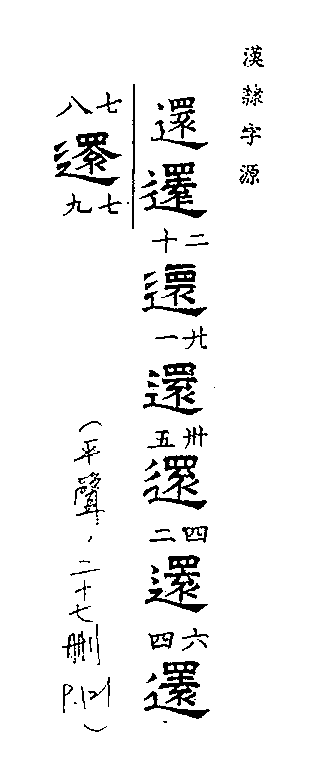 漢隸字源
還還二十還廿一還卅五還四二還六四還
七八還七九
(平聲,二十七刪 P.121)